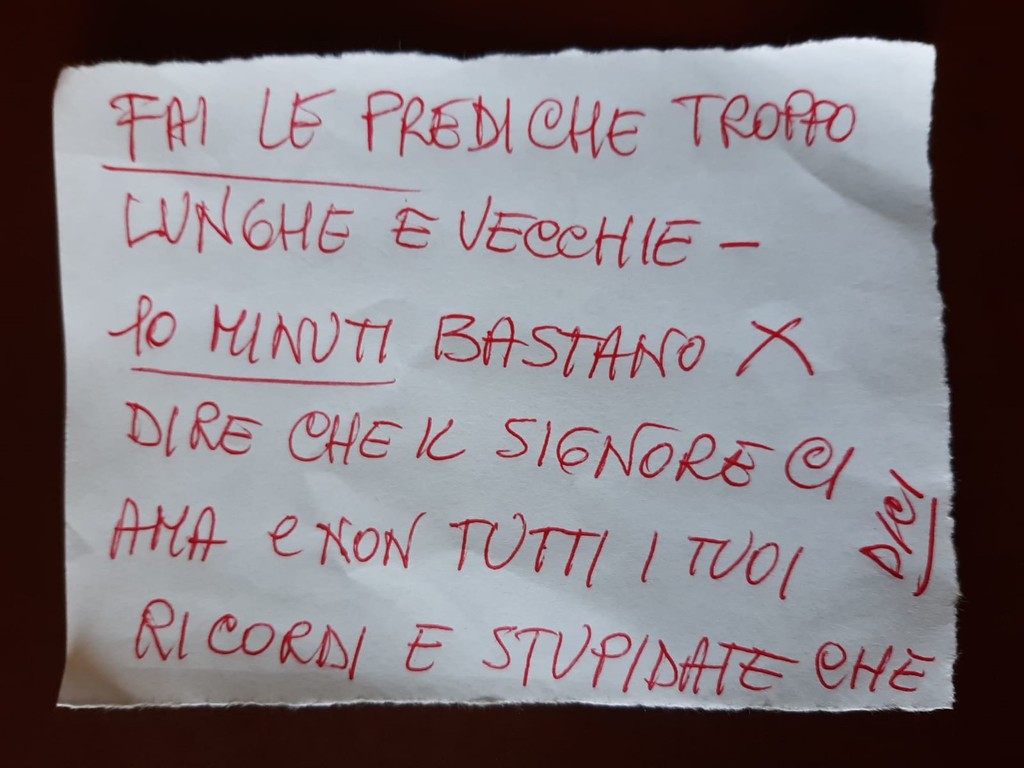 FAI LE PREDICHE TROPPO
LUNGHE E VECCHIE -
10 MINUTI BASTANO X
DIRE CHE IL SIGNORE CI
AMA e NON TUTTI I TUOI
RICORDI E STUPIDATE CHE
DICI